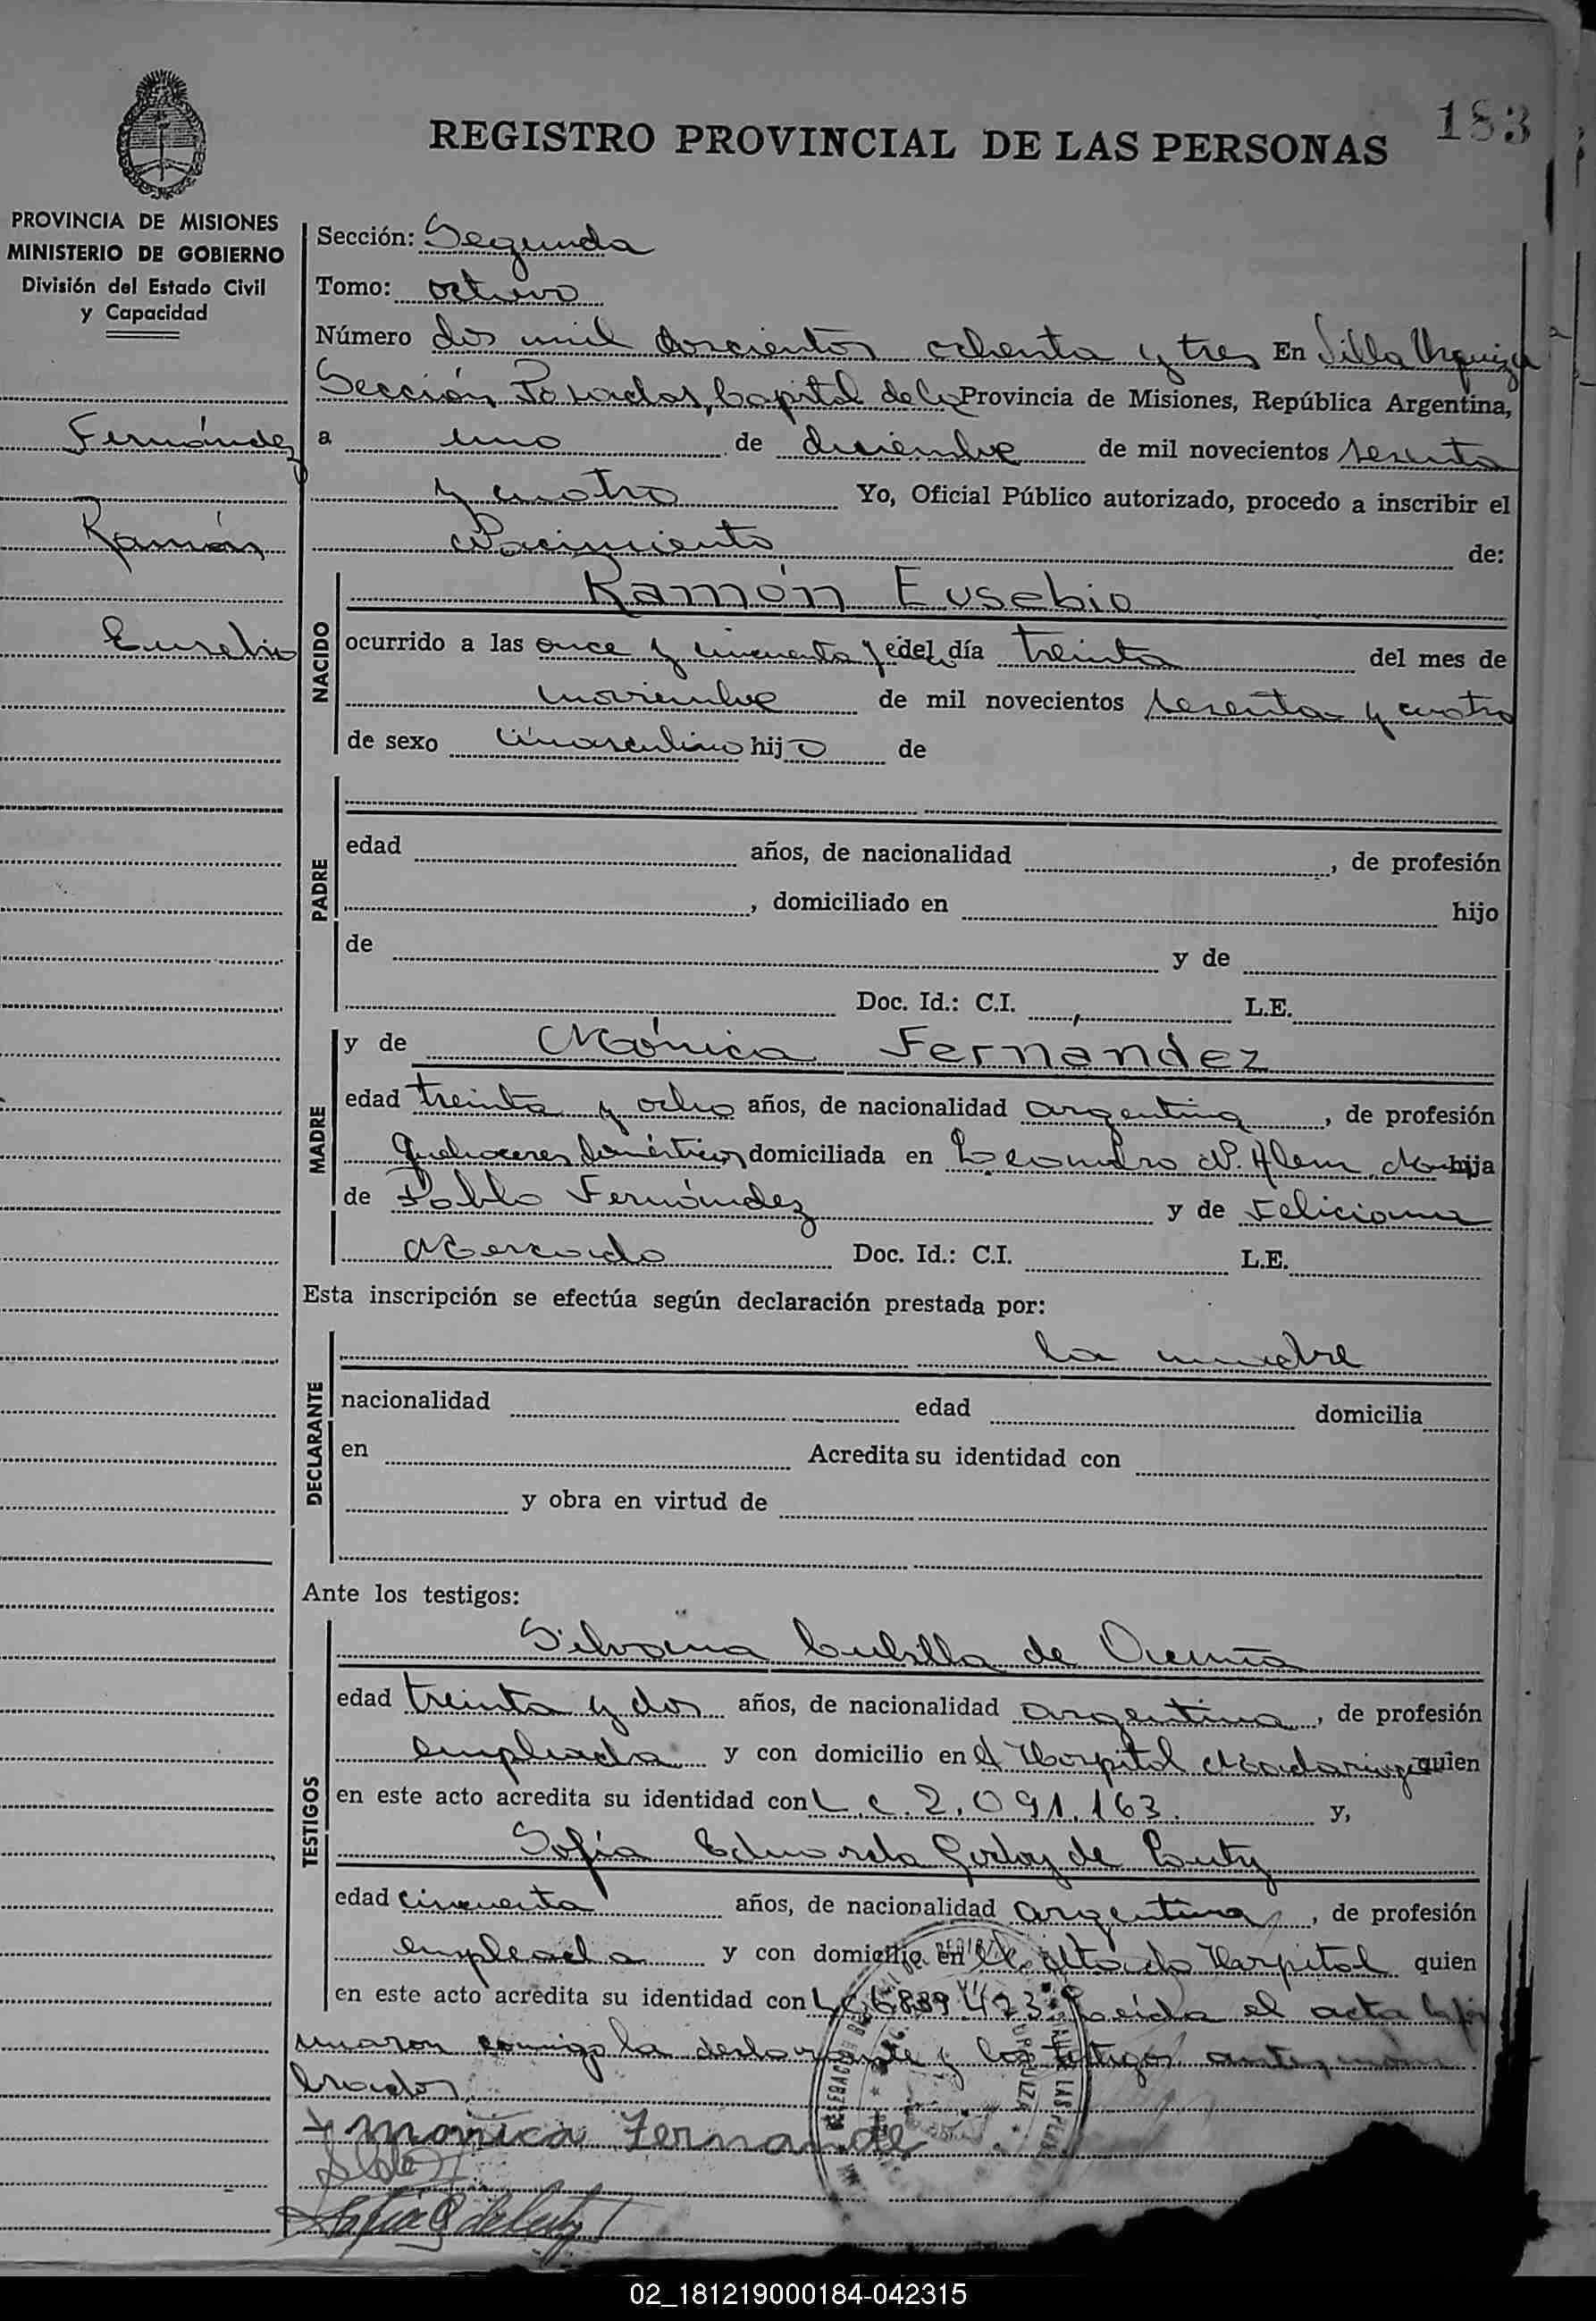 183
REGISTRO PROVINCIAL DE LAS PERSONAS
PROVINCIA DE MISIONES
MINISTERIO DE GOBIERNO
División del Estado Civil
y Capacidad
Fernández
Ramón
Eusebio
Sección: Segunda
Tomo: octavo
Número dos mil doscientos ochenta y tres En Villa Urquiza
Sección Posadas, Capital de la Provincia de Misiones, República Argentina,
a uno de diciembre de mil novecientos sesenta
y cuatro Yo, Oficial Público autorizado, procedo a inscribir el
Nacimiento de:
NACIDO
Ramón Eusebio
ocurrido a las once y cincuenta del día treinta del mes de
noviembre de mil novecientos sesenta y cuatro
de sexo masculino hijo de
PADRE
edad años, de nacionalidad , de profesión
, domiciliado en hijo
de y de
Doc. Id.: C.I. L.E.
MADRE
y de Mónica Fernandez
edad treinta y ocho años, de nacionalidad argentina, de profesión
quehaceres domésticos domiciliada en Leandro N. Alem, hija
de Pablo Fernández y de Feliciana
Mercado Doc. Id.: C.I. L.E.
Esta inscripción se efectúa según declaración prestada por:
DECLARANTE
la madre
nacionalidad edad domicilia
en Acredita su identidad con
y obra en virtud de
Ante los testigos:
TESTIGOS
Silvana Cubilla de
edad treinta y dos años, de nacionalidad argentina, de profesión
empleada y con domicilio en el Hospital Madariaga quien
en este acto acredita su identidad con L.C. 2.091.163. y,
Sofía Eduarda Godoy de
edad cincuenta años, de nacionalidad argentina, de profesión
empleada y con domicilio en el citado Hospital quien
en este acto acredita su identidad con L.C. 6839.423. Leída el acta la fir
maron conmigo la declarante y los testigos antes nom
brados
Monica Fernande
02_181219000184-042315